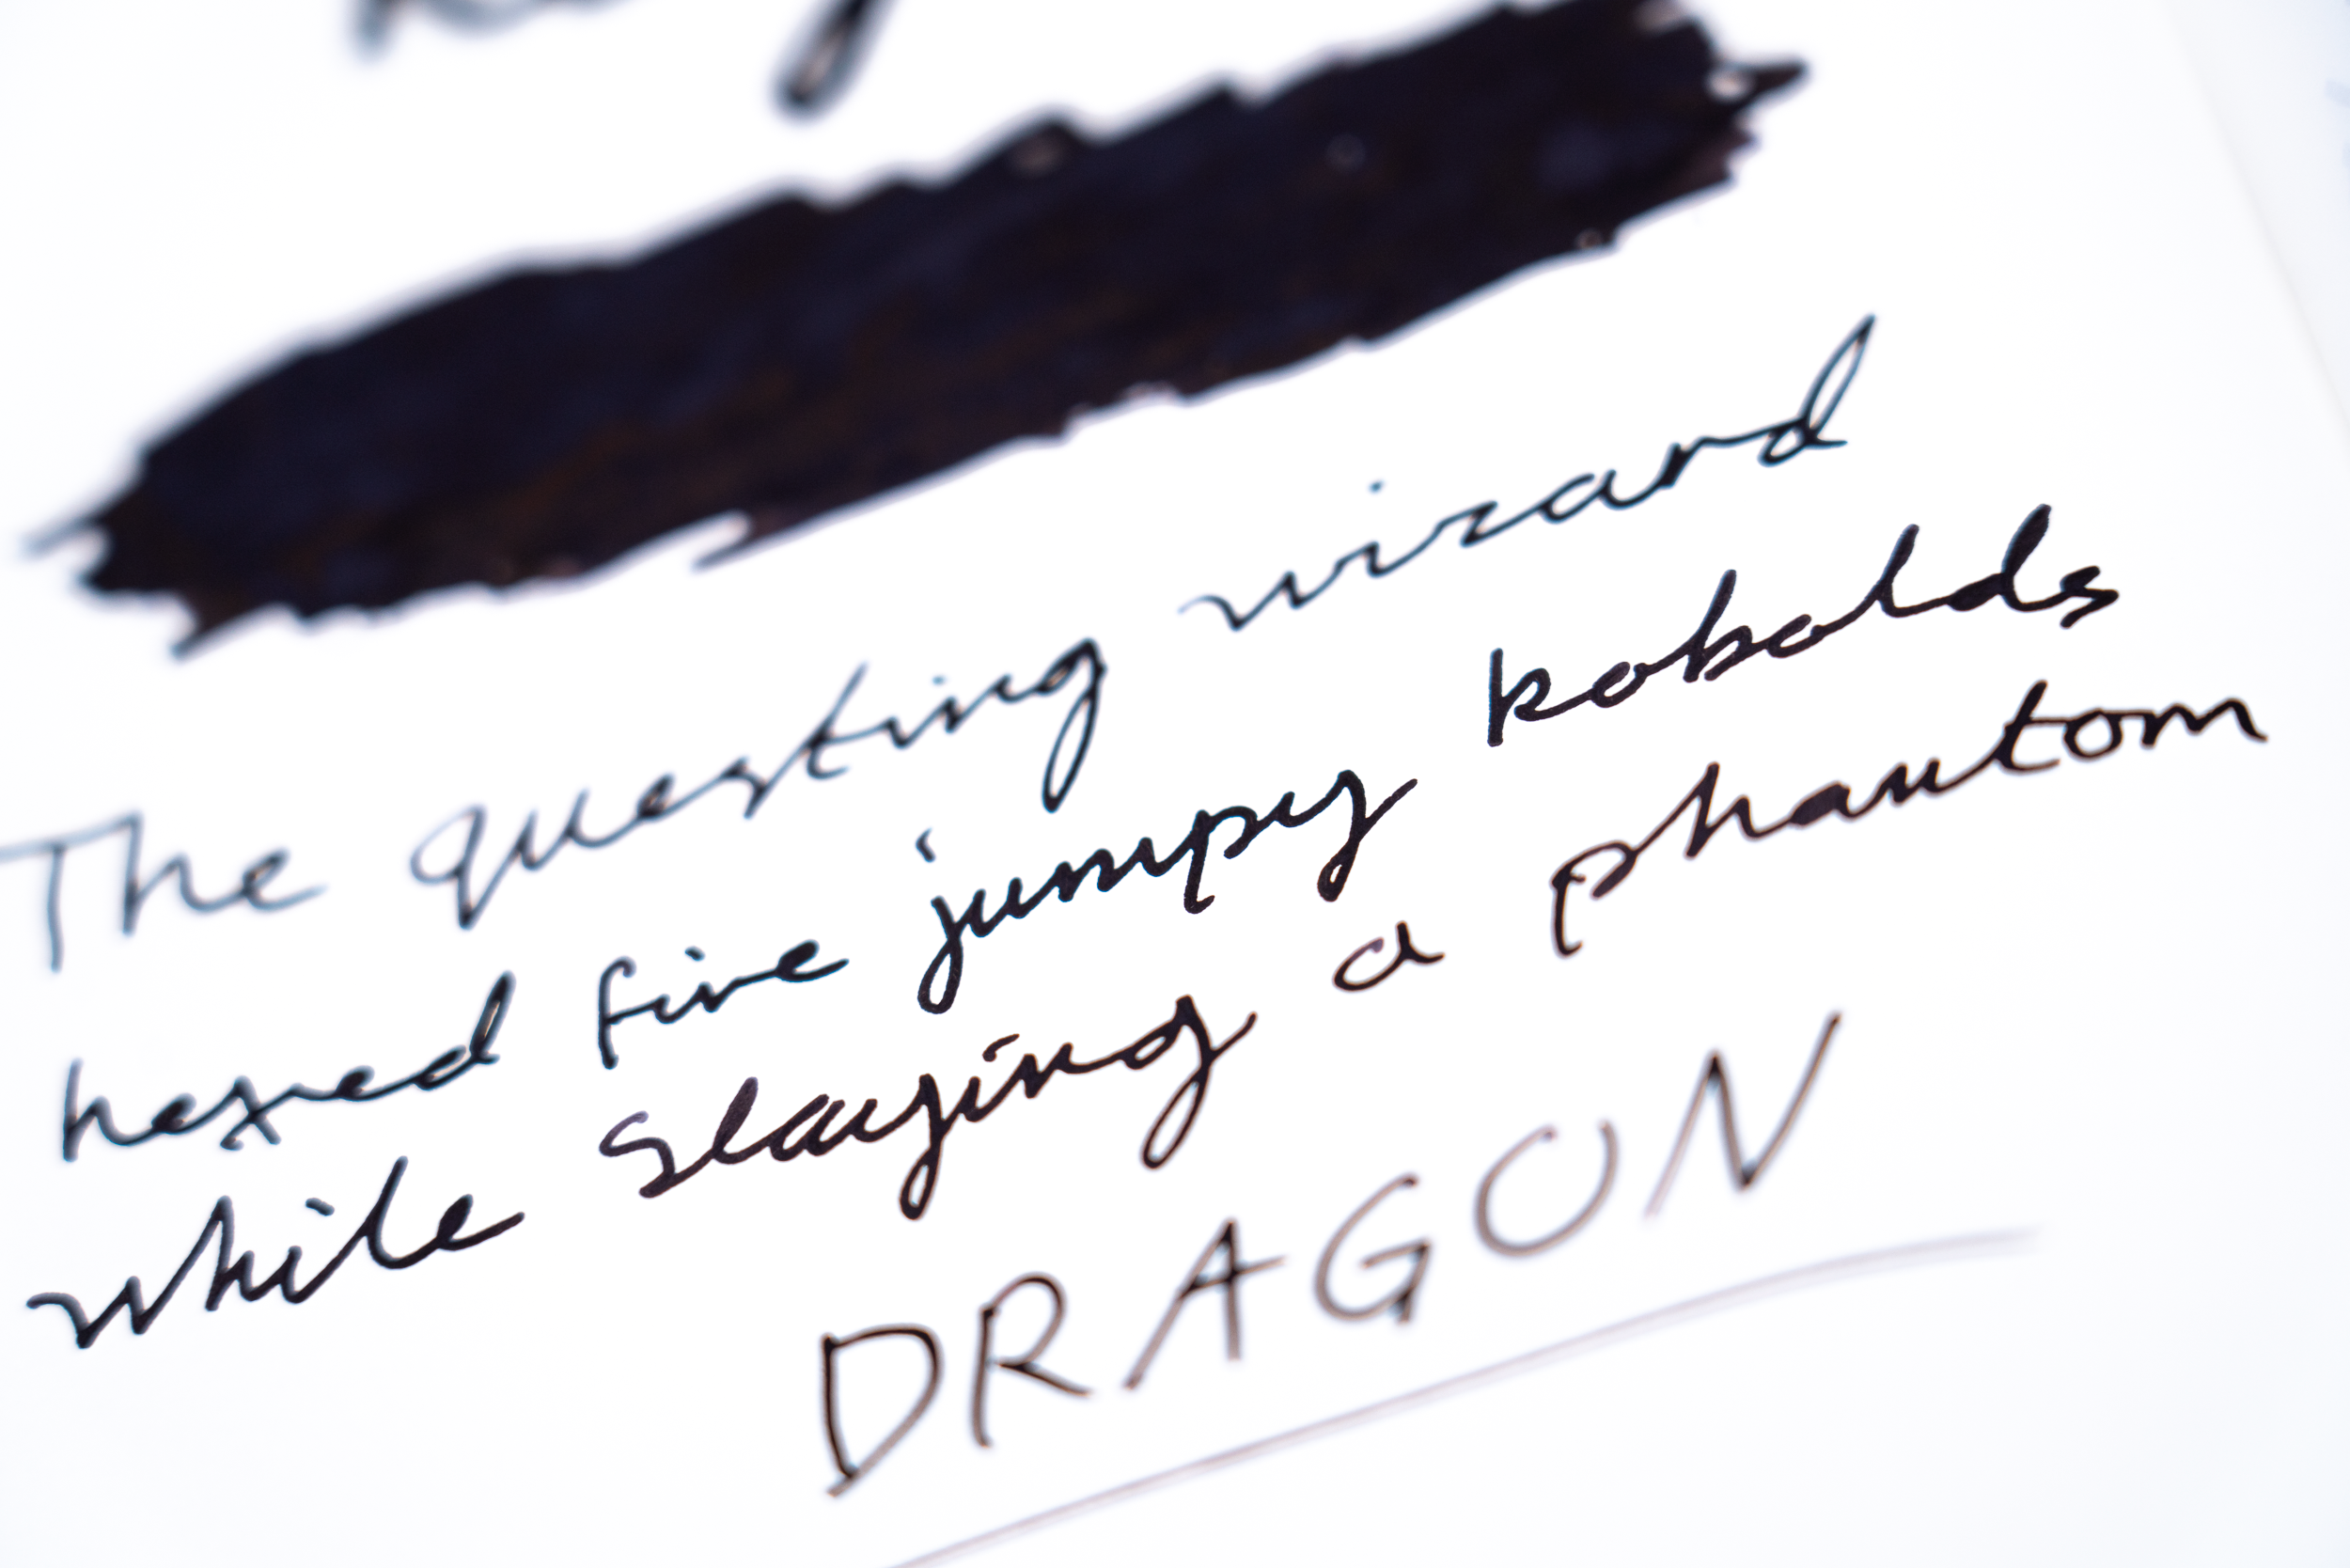 The questing wizard
hexed five jumpy kobolds
while slaying a phantom
DRAGON